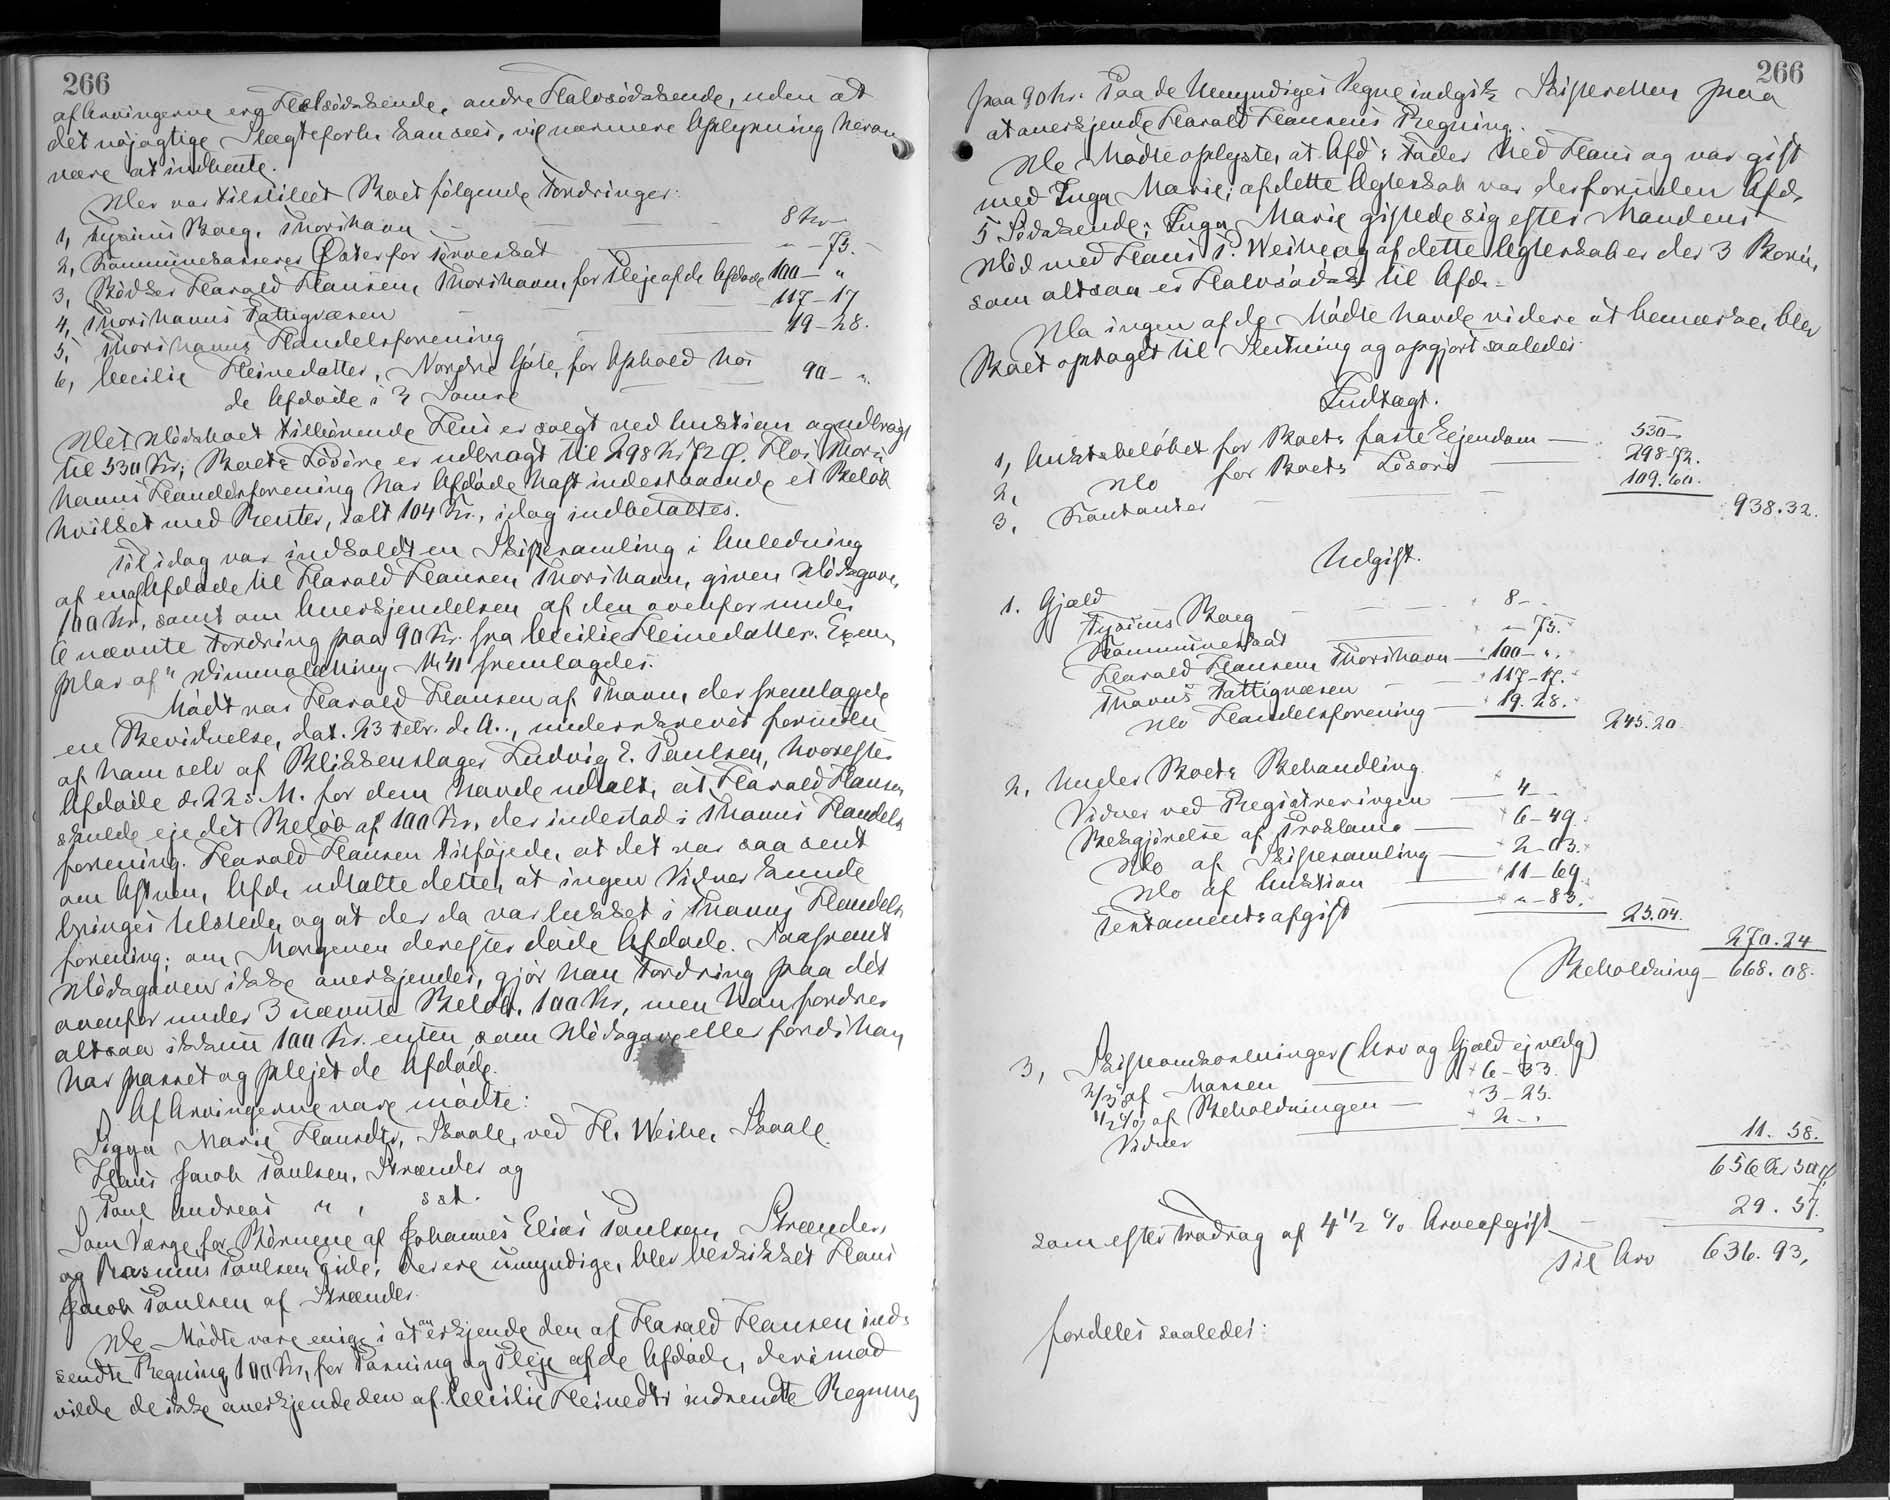 266
af Arvingerne ere Helsødskende, andre Halvsødskende, uden at
det nøjagtige Slægtsforh. kan sees, vil nærmere Oplysning herom
være at indhente.
Der var tilstillet Boet følgende Fordringer:
1, Thorshavn 8 Kr
2, Kommunekasserer Øster for Tørveskat " - 75.
3, Bødker Harald Hansen, Thorshavn, for Pleje af de Afdøde 100 - "
4, Thorshavns Fattigvæsen 117 - 17
5, Thorshavns Handelsforening 19 - 28.
6, Cecilie Heinedatter, Nordre Gjøte, for Ophold hos
de Afdøde i 3 Somre 90 - ".
Det Dødsboet tilhørende Hus er solgt ved Auktion og udbragt
til 530 Kr; Boets Løsøre er udbragt til 298 Kr 72 Ø. Hos Thors-
havns Handelsforening har Afdøde haft indestaaende et Beløb
hvilket med Renter, ialt 104 Kr., idag indbetaltes.
Til idag var indkaldt en Skiftesamling i Anledning
af en af Afdøde til Harald Hansen Thorshavn, given Dødsgave,
100 Kr, samt om Anerkjendelsen af den ovenfor under
6 nævnte Fordring paa 90 Kr. fra Cecilie Heinedatter. Exem-
plar af "Dimmalætting" № 41 fremlagdes.
Mødt var Harald Hansen af Thavn, der fremlagde
en Bevidnelse, dat. 23 Febr. d. A., underskrevet foruden
af ham selv af Blikkenslager Ludvig E. Poulsen, hvorefter
Afdøde d. 22 s. M. for dem havde udtalt, at Harald Hansen
skulde eje det Beløb af 100 Kr, der indestod i Thavns Handels-
forening. Harald Hansen tilføjede, at det var saa sent
om Aftnen, Afd. udtalte dette, at ingen Vidner kunde
bringes tilstede, og at der da var lukket i Thavns Handels-
forening; om Morgenen derefter døde Afdøde. Saafremt
Dødsgaven ikke anerkjendes, gjør han Fordring paa det
ovenfor under 3 nævnte Beløb, 100 Kr, men han fordrer
altsaa ikkun 100 Kr. enten som Dødsgave eller fordi han
har passet og plejet de Afdøde.
Af Arvingerne vare mødte:
Sigga Marie Hansdtr, Skaale, ved H. Weihe, Skaale.
Hans Jacob Poulsen, Strænder og
Poul Andreas " , sst.
Som Værge for Børnene af Johannes Elias Poulsen Strænder
og Rasmus Poulsen Eide, der ere umyndige, blev beskikket Hans
Jacob Poulsen af Strænder.
De Mødte vare enige i at anerkjende den af Harald Hansen ind-
sendte Regning 100 Kr, for Pasning og Pleje af de Afdøde, derimod
vilde de ikke anerkjende den af Cecilie Heinedtr indsendte Regning
266
paa 90 Kr. Paa de Umyndiges Vegne indgik Skifteretten paa
at anerkjende Harald Hansens Regning.
De Mødte oplyste, at Afd's Fader hed Hans og var gift
med Inga Marie; af dette Ægteskab var der foruden Afd.
5 Sødskende; Inga Marie giftede sig efter Mandens
Død med Hans P. Weihe og af dette Ægteskab er der 3 Børn,
som altsaa er Halvsødsk til Afd.
Da ingen af de Mødte havde videre at bemærke, blev
Boet optaget til Slutning og opgjort saaledes
Indtægt.
1, Auktsbeløbet for Boets faste Ejendom 530 -
2, Do for Boets Løsøre 298.72.
3, Kontanter 109.60. 938.32.
Udgift.
1. Gjæld
8 -
Kommuneskat " - 75.
Harald Hansen Thorshavn 100 - ".
Thavns Fattigvæsen 117 - 17.
Do Handelsforening 19.28. 245.20
2, Under Boets Behandling
Vidner ved Registreringen 4 -
Bekgjørelse af Proklama 6 - 49.
Do af Skiftesamling 2 - 03.
Do af Auktion 11 - 69
Testamentsafgift " - 83. 25.04.
270.24
Beholdning 668.08.
3, Skifteomkostninger (Arv og Gjæld ej vedg)
2/3 % af Massen 6 - 33.
1/2 % af Beholdningen 3 - 25.
Vidner 2 - . 11.58.
656 Kr 50 Ø
som efter Fradrag af 4 1/2 % Arveafgift 29.57.
til Arv 636.93,
fordeles saaledes: